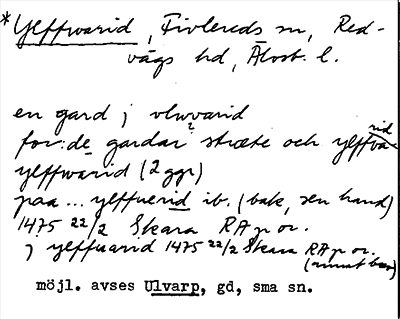 *Ylffwarid, Fivlereds sn, Red-
vägs hd, Älvsb. l.
en gard j vlwvarid
for:de gardar stræte och ylffvarid
ylffwarid (2 ggr)
paa ... ylffuerid ib. (bak, sen hand)
1475 22/2 Skara RAp or.
j ylffuarid 1475 22/2 Skara RAp or.
(annat brev)
möjl. avses Ulvarp, gd, sma sn.